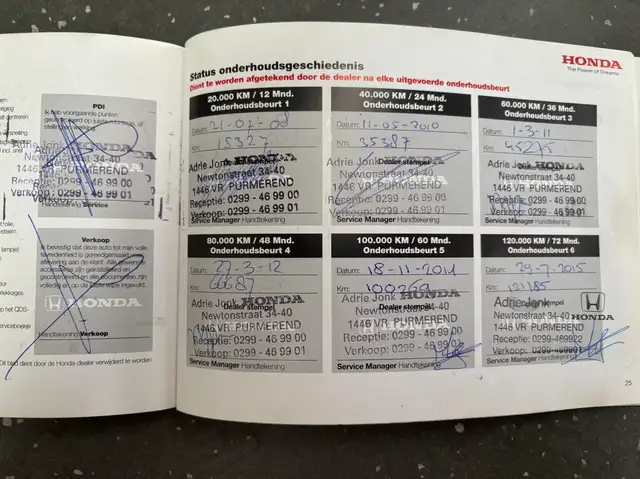 PDI
Ik heb voorgaande punten
gecontroleerd op juiste montage, af-
stelling en werking.
Adrie Jonk HONDA
Newtonstraat 34-40
1446 VR PURMEREND
Receptie: 0299 - 46 99 00
Verkoop: 0299 - 46 99 01
Handtekening Service
Verkoop
Ik bevestig dat deze auto tot mijn volle
tevredenheid is gereedgemaakt voor
aflevering aan de klant.
HONDA
Handtekening Verkoop
Dit blad dient door de Honda-dealer verwijderd te worden
Status onderhoudsgeschiedenis
Dient te worden afgetekend door de dealer na elke uitgevoerde onderhoudsbeurt
HONDA
The Power of Dreams
20.000 KM / 12 Mnd.
Onderhoudsbeurt 1
Datum: 21-02-08
Km: 15327
Adrie Jonk HONDA
Dealer stempel
Newtonstraat 34-40
1446 VR PURMEREND
Receptie: 0299 - 46 99 00
Verkoop: 0299 - 46 99 01
Service Manager Handtekening
40.000 KM / 24 Mnd.
Onderhoudsbeurt 2
Datum: 11-05-2010
Km: 35387
Adrie Jonk HONDA
Dealer stempel
Newtonstraat 34-40
1446 VR PURMEREND
Receptie: 0299 - 46 99 00
Verkoop: 0299 - 46 99 01
Service Manager Handtekening
60.000 KM / 36 Mnd.
Onderhoudsbeurt 3
Datum: 1-3-11
Km: 45275
Adrie Jonk HONDA
Dealer stempel
Newtonstraat 34-40
1446 VR PURMEREND
Receptie: 0299 - 46 99 00
Verkoop: 0299 - 46 99 01
Service Manager Handtekening
80.000 KM / 48 Mnd.
Onderhoudsbeurt 4
Datum: 27-3-12
Km: 66687
Adrie Jonk HONDA
Dealer stempel
Newtonstraat 34-40
1446 VR PURMEREND
Receptie: 0299 - 46 99 00
Verkoop: 0299 - 46 99 01
Service Manager Handtekening
100.000 KM / 60 Mnd.
Onderhoudsbeurt 5
Datum: 18-11-2014
Km:
Adrie Jonk HONDA
Dealer stempel
Newtonstraat 34-40
1446 VR PURMEREND
Receptie: 0299 - 46 99 00
Verkoop: 0299 - 46 99 01
Service Manager Handtekening
120.000 KM / 72 Mnd.
Onderhoudsbeurt 6
Datum: 29-7-2015
Km: 121185
Adrie Jonk
Dealer stempel
Newtonstraat 34-40 HONDA
1446 VR PURMEREND
Receptie: 0299-469922
Verkoop: 0299-469901
Service Manager Handtekening
25